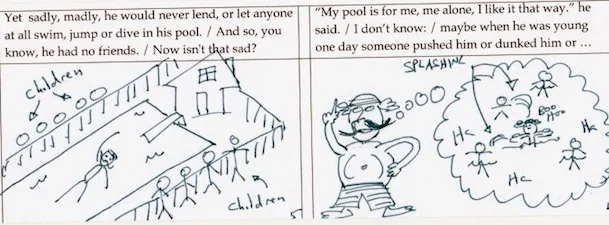 Yet sadly, madly, he would never lend, or let anyone
at all swim, jump or dive in his pool. / And so, you
know, he had no friends. / Now isn't that sad?
children
children
"My pool is for me, me alone, I like it that way." he
said. / I don't know: / maybe when he was young
one day someone pushed him or dunked him or ...
SPLASHING
BOO
HOO
Ha
Ha
Ha